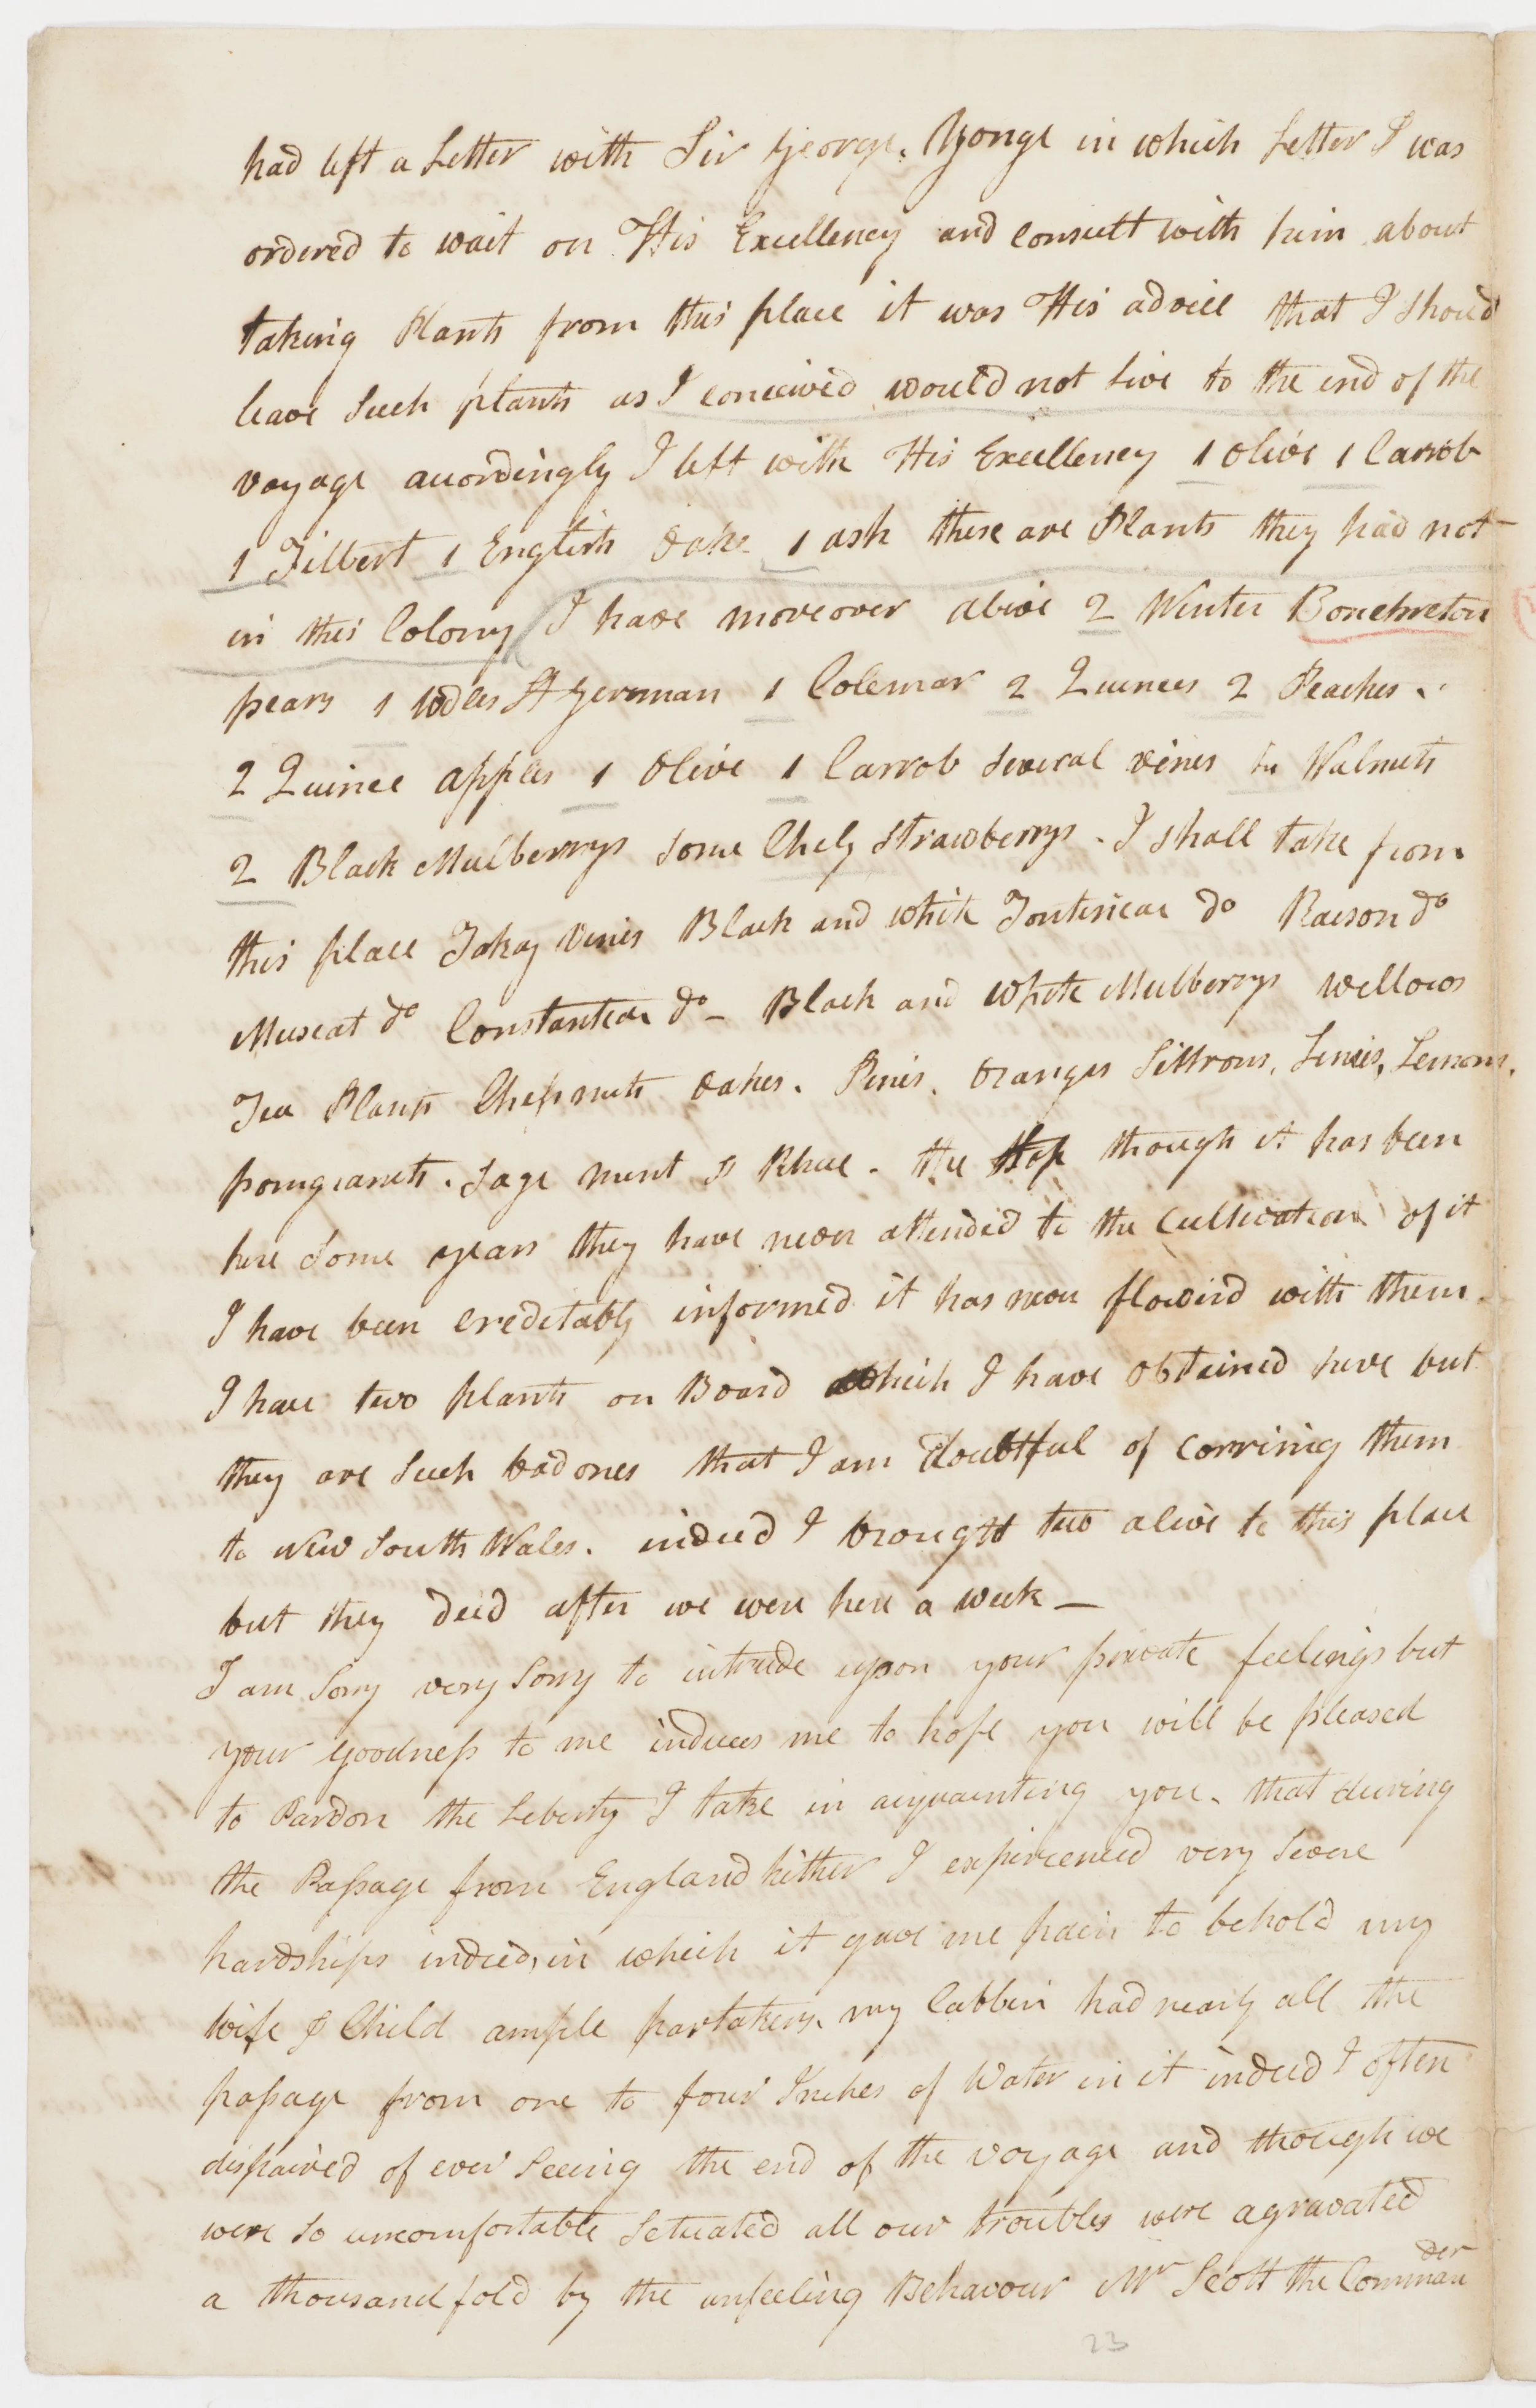 had left a Letter with Sir George Yonge in which Letter I was
ordered to wait on His Excellency and consult with him about
taking Plants from this place it was His advice that I should
leave Such plants as I conceived would not live to the end of the
voyage accordingly I left with His Excellency 1 olive 1 Carrob
1 Filbert 1 English Oake 1 ash these are Plants they had not
in this Colony I have moreover alive 2 Winter Bonchreton
pears 1 St German 1 Colemar 2 Quinces 2 Peaches.
2 Quince apples 1 Olive 1 Carrob several vines Walnuts
2 Black Mulberrys some Chely strawberrys. I shall take from
this place Tokay Vines Black and white Fonteniac do Raison do
Muscat do Constantia do - Black and White Mulberrys willows
Tea Plants Chesnuts oakes. Pines. Oranges Sittrons, Limes, Lemons,
pomgranets. Sage mint & Rhue. the Hop though it has been
here Some years they have never attended to the Cultivation of it
I have been creditably informed it has never flowerd with them.
I have two plants on Board which I have obtained here but
they are Such bad ones that I am doubtful of carring them
to New South Wales. indeed I brought two alive to this place
but they deid after we were here a week —
I am Sorry very Sorry to intrude upon your private feelings but
your goodness to me induces me to hope you will be pleased
to Pardon the Leberty I take in acquainting you. that during
the Passage from England hither I experienced very Severe
hardships indeed, in which it gave me pain to behold my
wife & Child ample partakers. my Cabbin had nearly all the
passage from one to four Inches of Water in it indeed I often
dispaired of ever Seeing the end of the voyage and though we
were so uncomfortable Setuated all our troubles were agravated
a thousand fold by the unfeeling Behavour Mr Scott the Commander
23